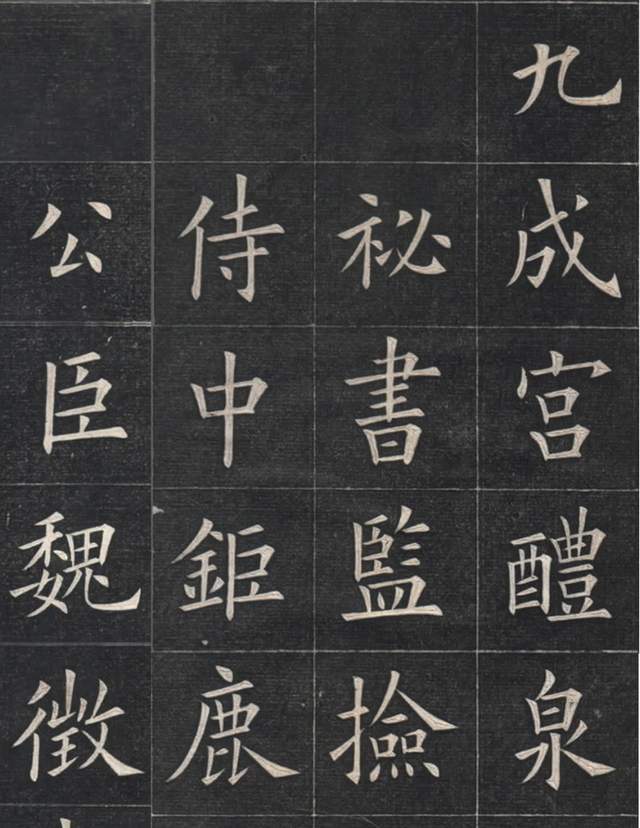 九成宮醴泉
祕書監撿
侍中鉅鹿
公臣魏徵